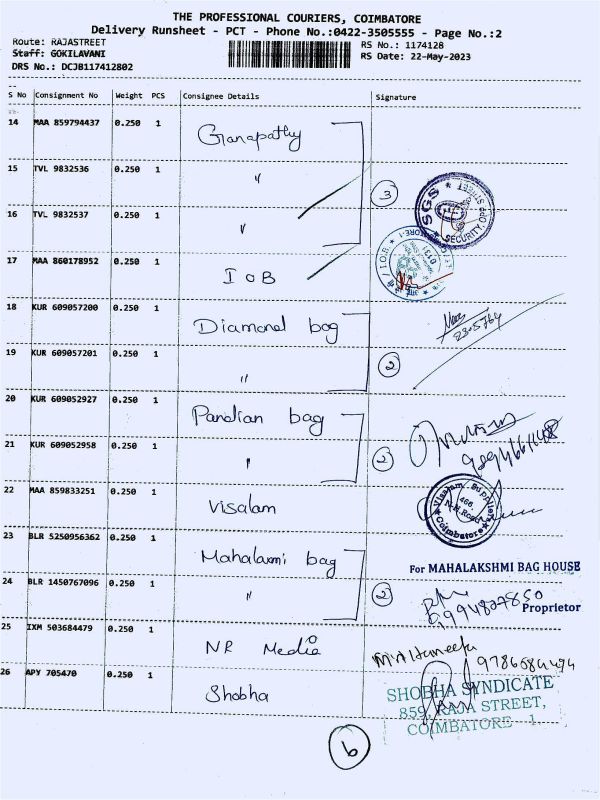 THE PROFESSIONAL COURIERS, COIMBATORE
Delivery Runsheet - PCT - Phone No.:0422-3505555 - Page No.:2
Route: RAJASTREET
Staff: GOKILAVANI
DRS No.: DCJB117412802
RS No.: 1174128
RS Date: 22-May-2023
S No Consignment No Weight PCS Consignee Details Signature
14 MAA 859794437 0.250 1 Ganapathy
15 TVL 9832536 0.250 1 "
3
SGS
SECURITY, OPP STREET
16 TVL 9832537 0.250 1 "
17 MAA 860178952 0.250 1 IOB
I.O.B.
18 KUR 609057200 0.250 1 Diamond bag
19 KUR 609057201 0.250 1 "
2
20 KUR 609052927 0.250 1 Pandian bag
21 KUR 609052958 0.250 1 "
2
22 MAA 859833251 0.250 1 Visalam
Visalam
Coimbatore
23 BLR 5250956362 0.250 1 Mahalaxmi bag
For MAHALAKSHMI BAG HOUSE
24 BLR 1450767096 0.250 1 "
2
9994827850
Proprietor
25 IXM 503684479 0.250 1 NR Media
26 APY 705470 0.250 1 Shobha
SHOBHA SYNDICATE
859, RAJA STREET,
COIMBATORE - 1.
6